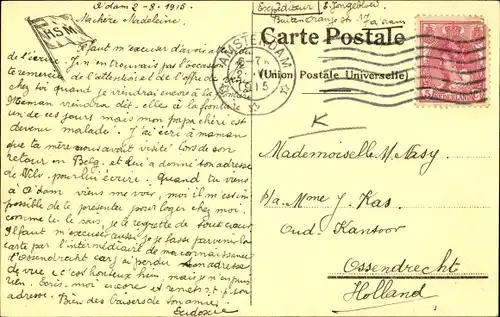 A'dam 2-8-1915.
Ma chère Madeleine.
Il faut m'excuser d'avoir
de t'écrire. Je n'en trouvais pas l'occasion
te remercie de l'attention et de l'offre de
chez toi quand je viendrai encore à la frontière
Maman viendra dit-elle à la frontière
un de ces jours mais mon papa chéri est
devenu malade. J'ai écrit à maman
que ta mère nous avait visité lors de son
retour en Belg. et qui a donné son adresse
de Vilv. pour lui écrire. Quand tu viens
à A'dam viens me voir, moi il m'est im-
possible de te présenter pour loger chez moi.
comme tu le sais, je le regrette de tout cœur
Il faut m'excuser aussi je te fasse parvenir la
carte par l'intermédiaire de ma connaissance
d'Ossendrecht car j'ai perdu ton adresse
de vue c'est honteux hein, mais je n'en puis
rien. Ecris-moi encore et remets
adresse. Bien des baisers de ton amie.
Eudoxie
HSM
Expéditeur
E. Jongebloed
Buiten Oranje str 17
A'dam
Carte Postale
(Union Postale Universelle)
AMSTERDAM
15
5
NEDERLAND
Mademoiselle M. Nasy.
p/a. Mme J. Kas.
Oud. Kantoor
Ossendrecht
Holland